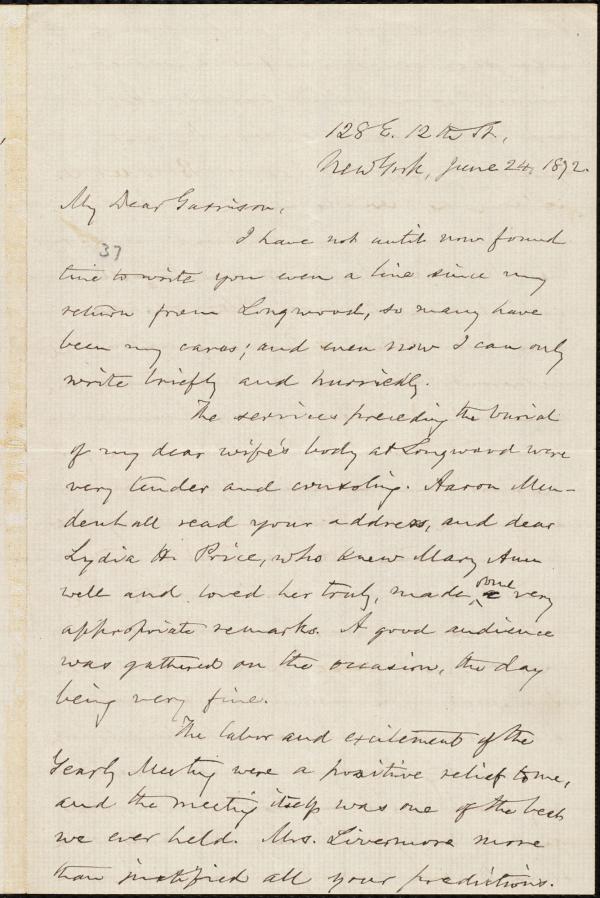 128 E. 12th St.,
New York, June 24, 1872.
My Dear Garrison,
37
I have not until now found
time to write you even a line since my
return from Longwood, so many have
been my cares; and even now I can only
write briefly and hurriedly.
The services preceding the burial
of my dear wife's body at Longwood were
very tender and consoling. Aaron Men-
denhall read your address, and dear
Lydia H. Price, who knew Mary Ann
well and loved her truly, made some very
appropriate remarks. A good audience
was gathered on the occasion, the day
being very fine.
The labor and excitement of the
Yearly Meeting were a positive relief to me,
and the meeting itself was one of the best
we ever held. Mrs. Livermore more
than justified all your predictions.